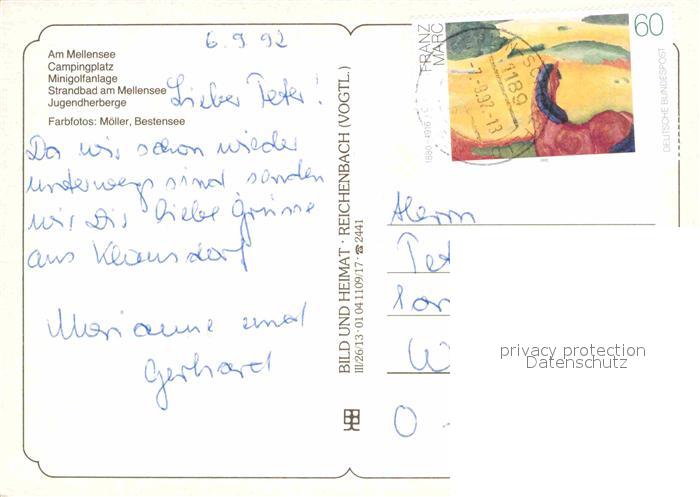 6.9.92
Am Mellensee
Campingplatz
Minigolfanlage
Strandbad am Mellensee
Jugendherberge
Farbfotos: Möller, Bestensee
Lieber Peter!
Da wir schon wieder
unterwegs sind senden
wir Dir liebe Grüsse
aus Klausdorf
Marianne und
Gerhard
BILD UND HEIMAT · REICHENBACH (VOGTL.)
III/26/13 · 01 04 1109/17 · ☎ 2441
FRANZ
MARC
1880-1916
60
DEUTSCHE BUNDESPOST
-7.9.92-13
1189
Herrn
Pet
O -
privacy protection
Datenschutz